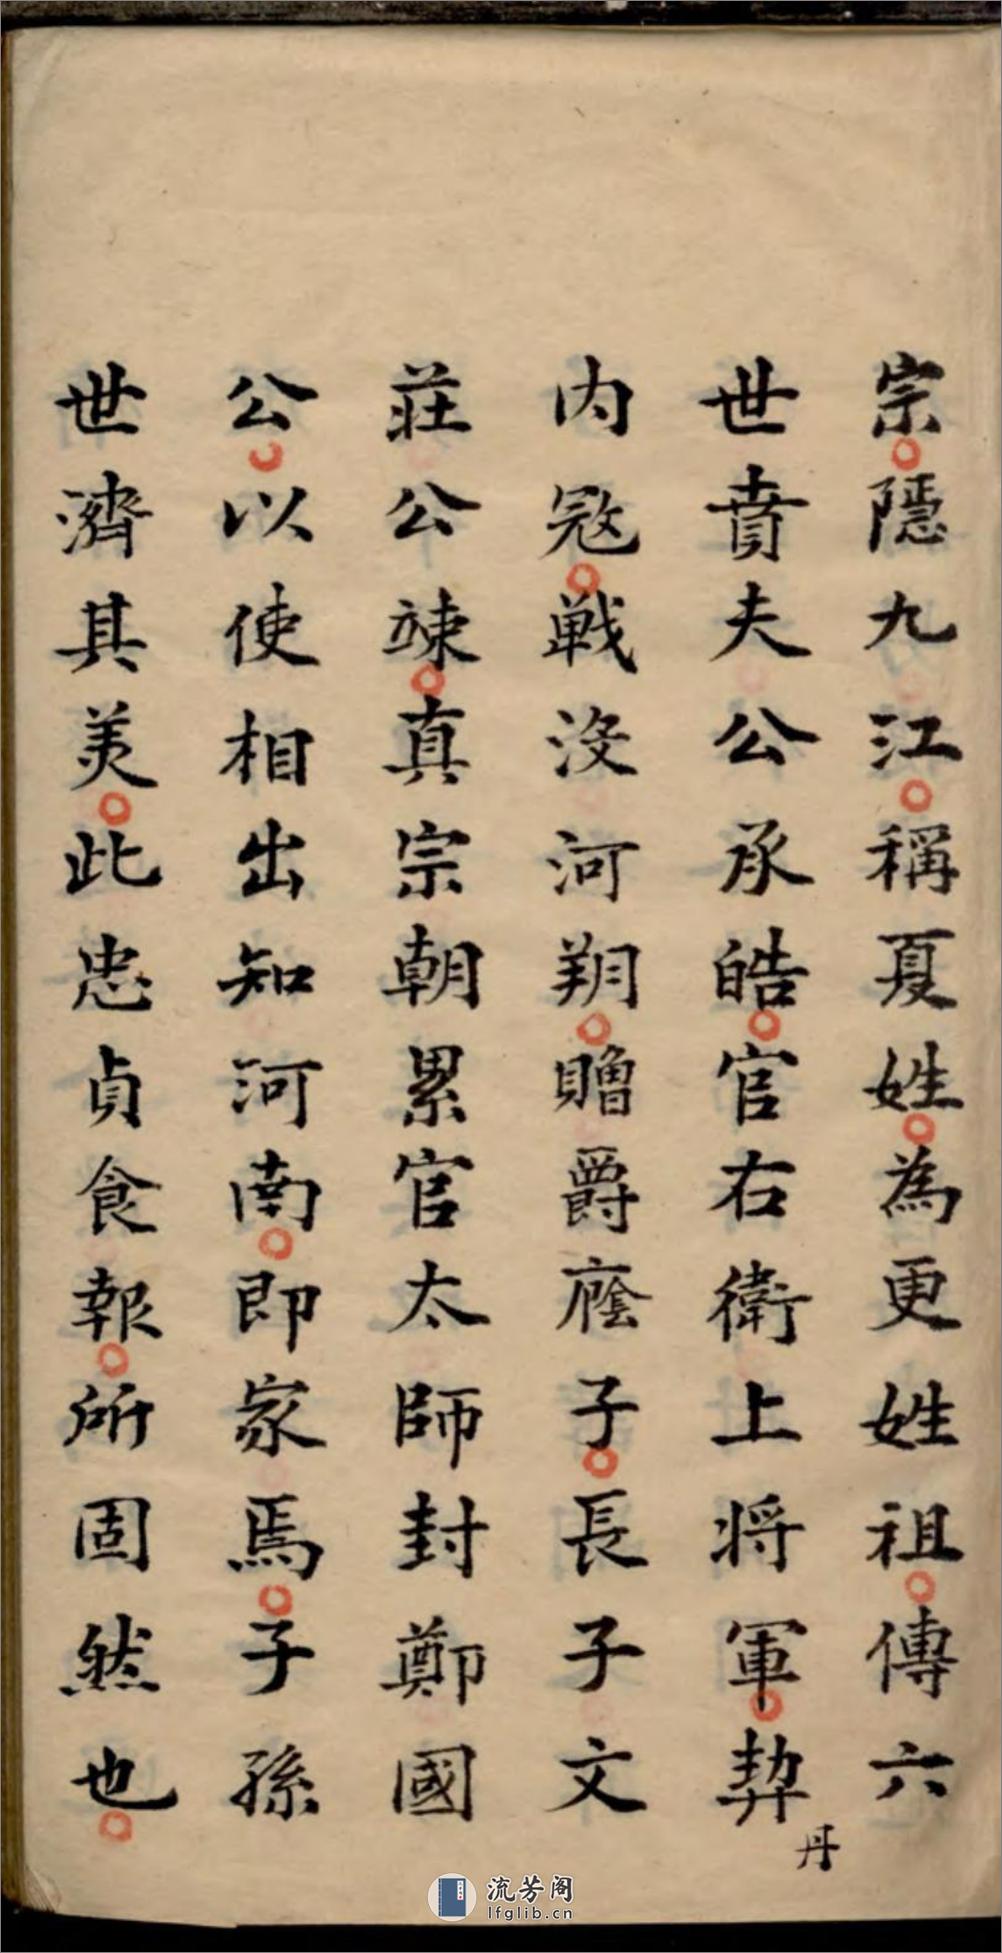 宗隱九江稱夏姓為更姓祖傳六
世賁夫公承皓官右衛上將軍契
丹
内冦戰沒河朔贈爵廕子長子文
莊公竦真宗朝累官太師封鄭國
公以使相出知河南即家焉子孫
世濟其美此忠貞食報所固然也
流芳阁
lfglib.cn